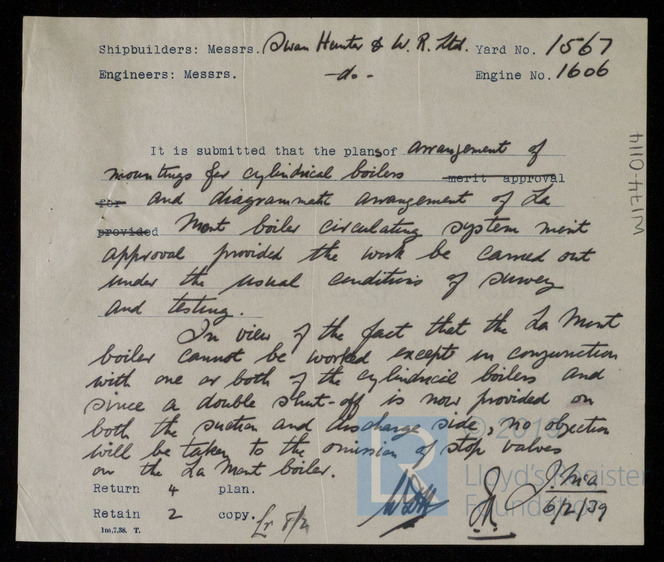 Shipbuilders: Messrs. Swan Hunter & W. R. Ltd. Yard No. 1567
Engineers: Messrs. -do- Engine No. 1606
It is submitted that the plans of arrangement of
mountings for cylindrical boilers merit approval
for and diagrammatic arrangement of La
provided Mont boiler circulating system merit
approval provided the work be carried out
under the usual conditions of survey
and testing.
In view of the fact that the La Mont
boiler cannot be worked except in conjunction
with one or both of the cylindrical boilers and
since a double shut-off is now provided on
both the suction and discharge side, no objection
will be taken to the omission of stop valves
on the La Mont boiler.
Return 4 plan.
Retain 2 copy. Lr 8/2
6/2/39
1m,7,38. T.
W174-0114
© 2019
Lloyd's Register
Foundation
LR